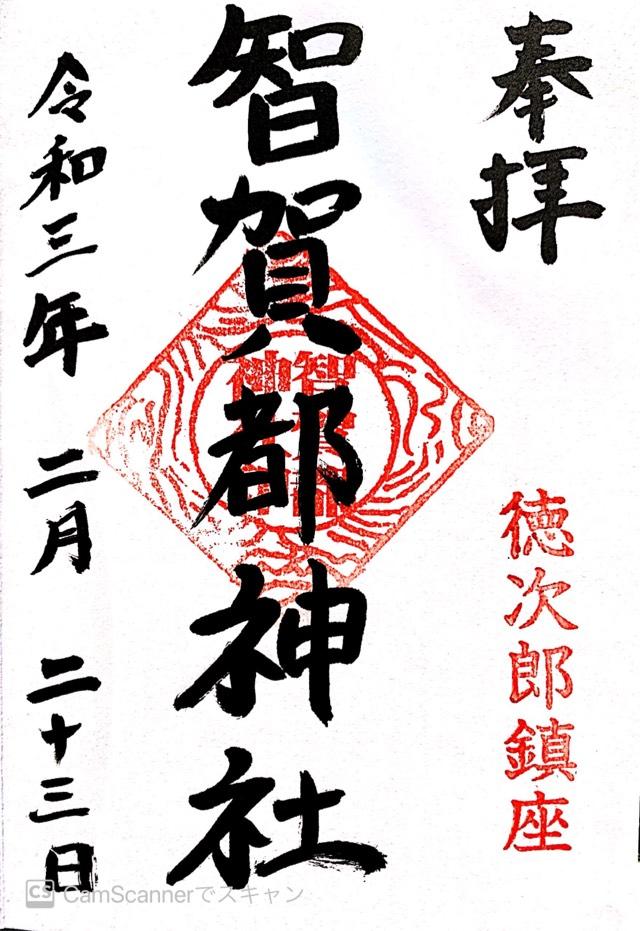 奉拝
徳次郎鎮座
智賀都神社
令和三年 二月 二十三日
CS CamScannerでスキャン